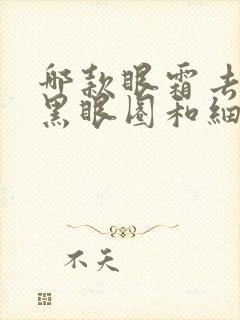 哪款眼霜去
黑眼圈和细
不天